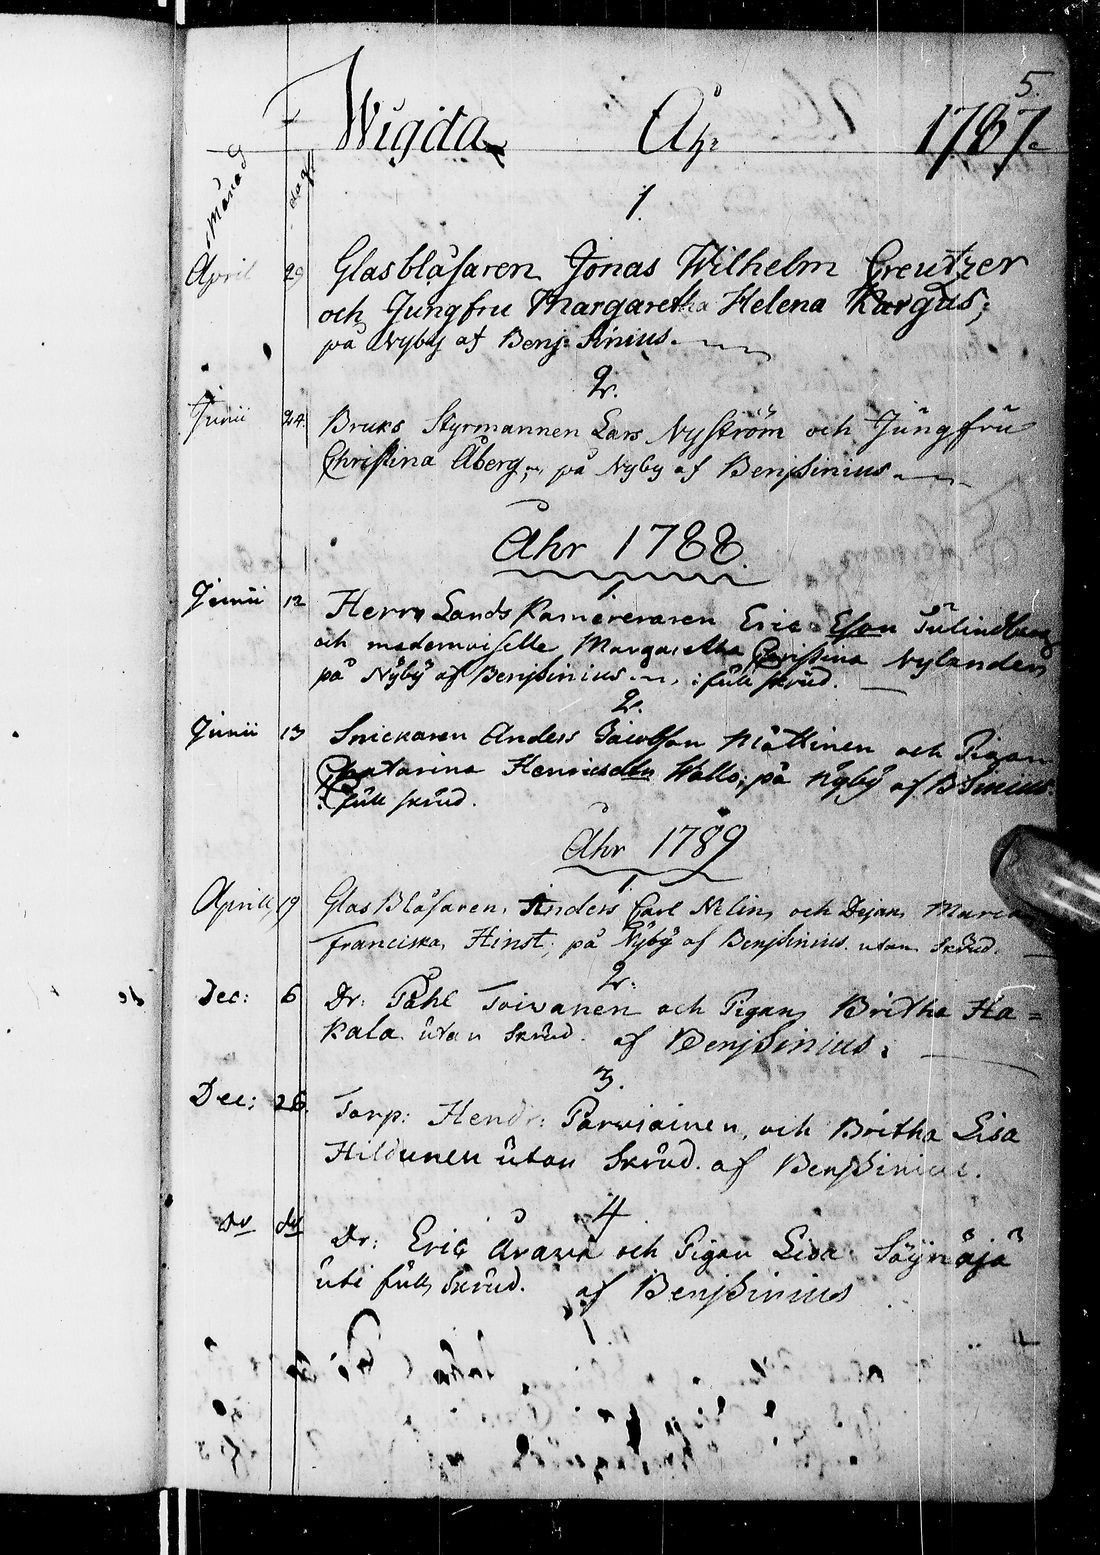 5.
Wigda Åhr 1787.
Månad dag
1.
April 29 Glasblåsaren Jonas Wilhelm Creutzer
och Jungfru Margaretha Helena Kargus;
på Nyby af Benj: Sinius.
2.
Junii 24. Bruks Styrmannen Lars Nyström och Jungfru
Christina Åberg, på Nyby af BenjSinius
Åhr 1788.
1
Junii 12 Herr Lands Kamereraren Eric Eson Tulindberg
och mademoiselle Margaretha Christina Nylander
på Nyby af BenjSinius. i full skrud.
2.
Junii 13 Snickaren Anders Jacobson Mättinen och Pigan
Chatarina Henricsdtr Wallo; på Nyby af BSinius.
i full skrud.
Åhr 1789
1
Aprill 19 GlasBlåsaren Anders Carl Nelin, och Dejan Maria
Franciska Hinst; på Nyby af BenjSinius. utan Skrud.
2.
Dec: 6 Dr: Påhl Toivanen och Pigan Britha Ha=
kala utan Skrud. af BenjSinius.
3.
Dec: 26. Torp: Hendr: Parviainen, och Britha Lisa
Hildunen utan Skrud. af BenjSinius.
4
do do Dr: Eric Arava och Pigan Lisa Söynäjä
uti full Skrud. af BenjSinius